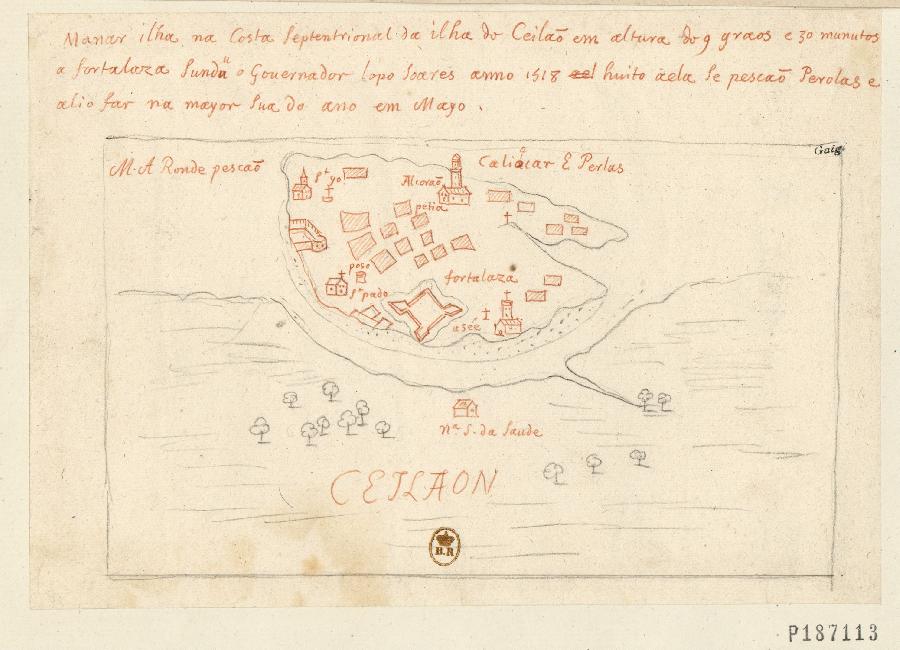 Manar ilha na Costa Septentrional da ilha do Ceilaõ em altura do 9 graos e 30 munutos
a fortalaza Sundu o Governador lopo Soares anno 1518 huito aela Se pescaõ Perolas e
alio far na mayor Sua do ano em Mayo.
Gaig
M. A Ronde pescaõ
Calià car E Perlas
Sto yo
Alcoraõ
petia
poso
fortalaza
Sto pado
asèe
Na. S. da Saude
CEILAON
B.R
P187113